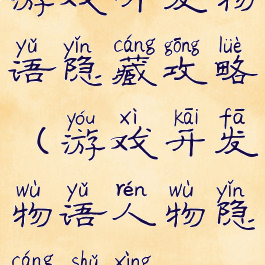 游戏开发物
yǔ yǐn cáng gōng lüè
语隐藏攻略
yóu xì kāi fā
（游戏开发
wù yǔ rén wù yǐn
物语人物隐
cáng shǔ xìng